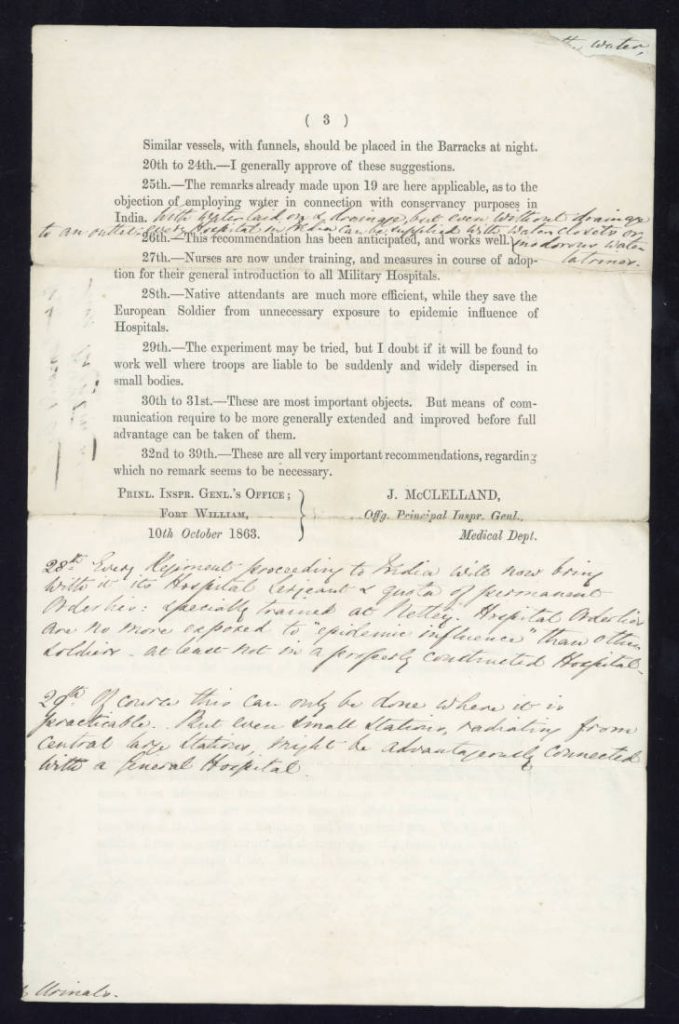 the water,
( 3 )
Similar vessels, with funnels, should be placed in the Barracks at night.
20th to 24th.—I generally approve of these suggestions.
25th.—The remarks already made upon 19 are here applicable, as to the
objection of employing water in connection with conservancy purposes in
India. With water laid on & drainage, but even without drainage
to an outlet every Hospital in India can be supplied with water closets or
26th.—This recommendation has been anticipated, and works well. inodorous water
latrines.
27th.—Nurses are now under training, and measures in course of adop-
tion for their general introduction to all Military Hospitals.
28th.—Native attendants are much more efficient, while they save the
European Soldier from unnecessary exposure to epidemic influence of
Hospitals.
29th.—The experiment may be tried, but I doubt if it will be found to
work well where troops are liable to be suddenly and widely dispersed in
small bodies.
30th to 31st.—These are most important objects. But means of com-
munication require to be more generally extended and improved before full
advantage can be taken of them.
32nd to 39th.—These are all very important recommendations, regarding
which no remark seems to be necessary.
Prinl. Inspr. Genl.'s Office;
Fort William,
10th October 1863.
J. McCLELLAND,
Offg. Principal Inspr. Genl.,
Medical Dept.
28th. Every Regiment proceeding to India will now bring
with it its Hospital Serjeant & quota of permanent
Orderlies: specially trained at Netley. Hospital Orderlies
are no more exposed to "epidemic influence" than other
soldiers - at least not in a properly constructed Hospital.
29th. Of course this can only be done where it is
practicable. But even small Stations, radiating from
Central large Stations, might be advantageously connected
with a general Hospital.
Urinals.